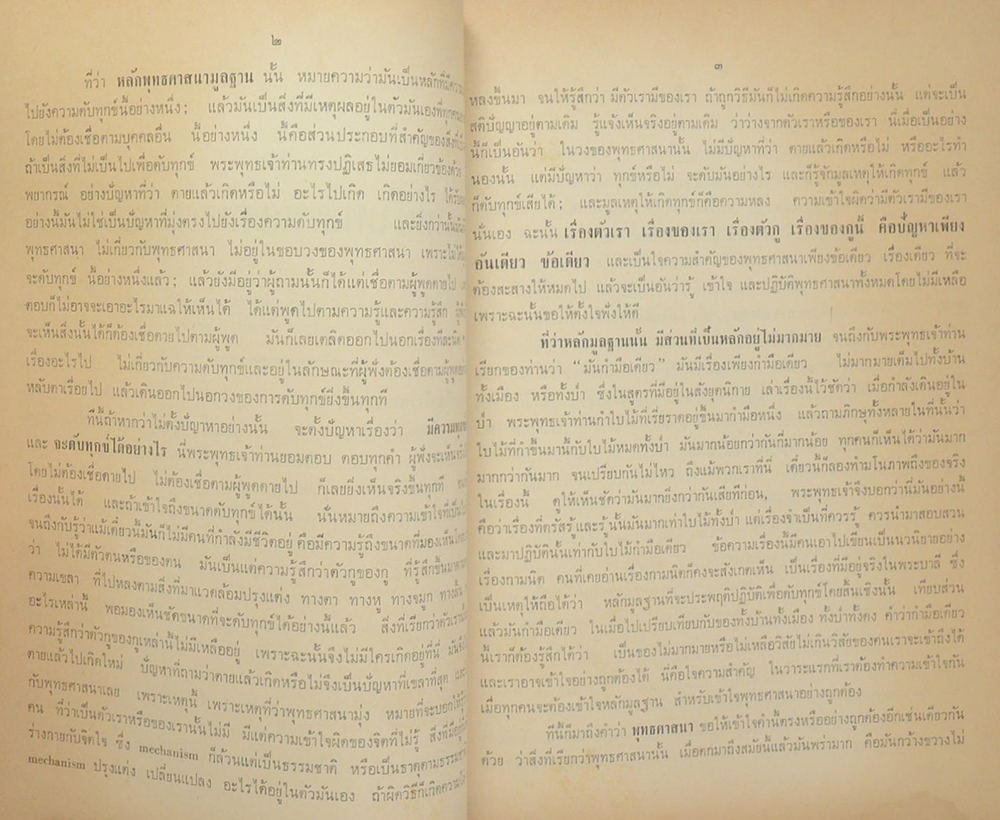 ๒
ที่ว่า หลักพุทธศาสนามูลฐาน นั้น หมายความว่ามันเป็นหลักที่มีความ
ไปยังความดับทุกข์นี้อย่างหนึ่ง; แล้วมันเป็นสิ่งที่มีเหตุผลอยู่ในตัวมันเองที่ทุกคน
โดยไม่ต้องเชื่อตามบุคคลอื่น นี้อย่างหนึ่ง นี้คือส่วนประกอบที่สำคัญของสิ่งที่
ถ้าเป็นสิ่งที่ไม่เป็นไปเพื่อดับทุกข์ พระพุทธเจ้าท่านทรงปฏิเสธไม่ยอมเกี่ยวข้องด้วย
พยากรณ์ อย่างปัญหาที่ว่า ตายแล้วเกิดหรือไม่ อะไรไปเกิด เกิดอย่างไร ได้รับ
อย่างนี้มันไม่ใช่เป็นปัญหาที่มุ่งตรงไปยังเรื่องความดับทุกข์ และยิ่งกว่านั้น
พุทธศาสนา ไม่เกี่ยวกับพุทธศาสนา ไม่อยู่ในขอบวงของพุทธศาสนา เพราะไม่ได้
จะดับทุกข์ นี้อย่างหนึ่งแล้ว; แล้วยังมีอยู่ว่าผู้ถามนั้นก็ได้แต่เชื่อตามผู้พูดดายไป
ตอบก็ไม่อาจจะเอาอะไรมาแฉให้เห็นได้ ได้แต่พูดไปตามความรู้และความรู้สึก
จะเห็นสิ่งนั้นได้ก็ต้องเชื่อดายไปตามผู้พูด มันก็เลยเตลิดออกไปนอกเรื่องทีละนิด
เรื่องอะไรไป ไม่เกี่ยวกับความดับทุกข์และอยู่ในลักษณะที่ผู้ฟังต้องเชื่อตามผู้พูด
หลับตาเรื่อยไป แล้วเดินออกไปนอกวงของการดับทุกข์ยิ่งขึ้นทุกที
ทีนี้ถ้าหากว่าไม่ตั้งปัญหาอย่างนั้น จะตั้งปัญหาเรื่องว่า มีความทุกข์
และ จะดับทุกข์ได้อย่างไร นี่พระพุทธเจ้าท่านยอมตอบ ตอบทุกคำ ผู้ฟังจะเห็น
โดยไม่ต้องเชื่อดายไป ไม่ต้องเชื่อตามผู้พูดดายไป ก็เลยยิ่งเห็นจริงขึ้นทุกที
เรื่องนั้นได้ และถ้าเข้าใจถึงขนาดดับทุกข์ได้นั้น นั่นหมายถึงความเข้าใจที่
จนถึงกับรู้ว่าแม้เดี๋ยวนี้มันก็ไม่มีคนที่กำลังมีชีวิตอยู่ คือมีความรู้ถึงขนาดที่มองเห็น
ว่า ไม่ได้มีตัวตนหรือของตน มันเป็นแต่ความรู้สึกว่าตัวกูของกู ที่รู้สึกขึ้นมา
ความเขลา ที่ไปหลงตามสิ่งที่มาแวดล้อมปรุงแต่ง ทางตา ทางหู ทางจมูก ทางลิ้น
อะไรเหล่านี้ พอมองเห็นชัดขนาดที่จะดับทุกข์ได้อย่างนี้แล้ว สิ่งที่เรียกว่าตัวเรา
ความรู้สึกว่าตัวกูของกูเหล่านี้ไม่มีเหลืออยู่ เพราะฉะนั้นจึงไม่มีใครเกิดอยู่ที่นี่
ตายแล้วไปเกิดใหม่ ปัญหาที่ถามว่าตายแล้วเกิดหรือไม่จึงเป็นปัญหาที่เขลาที่สุด
กับพุทธศาสนาเลย เพราะเหตุนี้ เพราะเหตุที่ว่าพุทธศาสนามุ่ง หมายที่จะบอกให้รู้
คน ที่ว่าเป็นตัวเราหรือของเรานั้นไม่มี มีแต่ความเข้าใจผิดของจิตที่ไม่รู้ สิ่งที่มีอยู่
ร่างกายกับจิตใจ ซึ่ง mechanism ก็ล้วนแต่เป็นธรรมชาติ หรือเป็นธาตุตามธรรมชาติ
mechanism ปรุงแต่ง เปลี่ยนแปลง อะไรได้อยู่ในตัวมันเอง ถ้าผิดวิธีก็เกิดความ
๓
หลงขึ้นมา จนให้รู้สึกว่า มีตัวเรามีของเรา ถ้าถูกวิธีมันก็ไม่เกิดความรู้สึกอย่างนั้น แต่จะเป็น
สติปัญญาอยู่ตามเดิม รู้แจ้งเห็นจริงอยู่ตามเดิม ว่าว่างจากตัวเราหรือของเรา นี่เมื่อเป็นอย่าง
นี้ก็เป็นอันว่า ในวงของพุทธศาสนานั้น ไม่มีปัญหาที่ว่า ตายแล้วเกิดหรือไม่ หรืออะไรทำ
นองนั้น แต่มีปัญหาว่า ทุกข์หรือไม่ จะดับมันอย่างไร และก็รู้จักมูลเหตุให้เกิดทุกข์ แล้ว
ก็ดับทุกข์เสียได้; และมูลเหตุให้เกิดทุกข์ก็คือความหลง ความเข้าใจผิดว่ามีตัวเรามีของเรา
นั่นเอง ฉะนั้น เรื่องตัวเรา เรื่องของเรา เรื่องตัวกู เรื่องของกูนี้ คือปัญหาเพียง
อันเดียว ข้อเดียว และเป็นใจความสำคัญของพุทธศาสนาเพียงข้อเดียว เรื่องเดียว ที่จะ
ต้องสะสางให้หมดไป แล้วจะเป็นอันว่ารู้ เข้าใจ และปฏิบัติพุทธศาสนาทั้งหมดโดยไม่มีเหลือ
เพราะฉะนั้นขอให้ตั้งใจฟังให้ดี
ที่ว่าหลักมูลฐานนั้น มีส่วนที่เป็นหลักอยู่ไม่มากมาย จนถึงกับพระพุทธเจ้าท่าน
เรียกของท่านว่า “มันกำมือเดียว” มันมีเรื่องเพียงกำมือเดียว ไม่มากมายเต็มไปทั้งบ้าน
ทั้งเมือง หรือทั้งป่า ซึ่งในสูตรที่มีอยู่ในสังยุตนิกาย เล่าเรื่องนี้ไว้ชัดว่า เมื่อกำลังเดินอยู่ใน
ป่า พระพุทธเจ้าท่านกำใบไม้ที่เรี่ยราดอยู่ขึ้นมากำมือหนึ่ง แล้วถามภิกษุทั้งหลายในที่นั้นว่า
ใบไม้ที่กำขึ้นมานี้กับใบไม้หมดทั้งป่า มันมากน้อยกว่ากันกี่มากน้อย ทุกคนก็เห็นได้ว่ามันมาก
มากกว่ากันมาก จนเปรียบกันไม่ไหว ถึงแม้พวกเราที่นี่ เดี๋ยวนี้ก็ลองทำมโนภาพถึงของจริง
ในเรื่องนี้ ดูให้เห็นชัดว่ามันมากยิ่งกว่ากันเสียทีก่อน, พระพุทธเจ้าจึงบอกว่านี่มันอย่างนี้
คือว่าเรื่องที่ตรัสรู้และรู้นั้นมันมากเท่าใบไม้ทั้งป่า แต่เรื่องจำเป็นที่ควรรู้ ควรนำมาสอบสวน
และมาปฏิบัตินั้นเท่ากับใบไม้กำมือเดียว ข้อความเรื่องนี้มีคนเอาไปเขียนเป็นนวนิยายอย่าง
เรื่องกามนิต คนที่เคยอ่านเรื่องกามนิตก็คงจะสังเกตเห็น เป็นเรื่องที่มีอยู่จริงในพระบาลี ซึ่ง
เป็นเหตุให้ถือได้ว่า หลักมูลฐานที่จะประพฤติปฏิบัติเพื่อดับทุกข์โดยสิ้นเชิงนั้น เทียบส่วน
แล้วมันกำมือเดียว ในเมื่อไปเปรียบเทียบกับของทั้งบ้านทั้งเมือง ทั้งป่าทั้งดง คำว่ากำมือเดียว
นี้เราก็ต้องรู้สึกได้ว่า เป็นของไม่มากมายหรือไม่เหลือวิสัยไม่เกินวิสัยของคนเราจะเข้าถึงได้
และเราอาจเข้าใจอย่างถูกต้องได้ นี่คือใจความสำคัญ ในวาระแรกที่เราต้องทำความเข้าใจกัน
เมื่อทุกคนจะต้องเข้าใจหลักมูลฐาน สำหรับเข้าใจพุทธศาสนาอย่างถูกต้อง
ทีนี้ก็มาถึงคำว่า พุทธศาสนา ขอให้เข้าใจคำนี้ตรงหรืออย่างถูกต้องอีกเช่นเดียวกัน
ด้วย ว่าสิ่งที่เรียกว่าพุทธศาสนานั้น เมื่อตกมาถึงสมัยนี้แล้วมันพร่ามาก คือมันกว้างขวางไม่